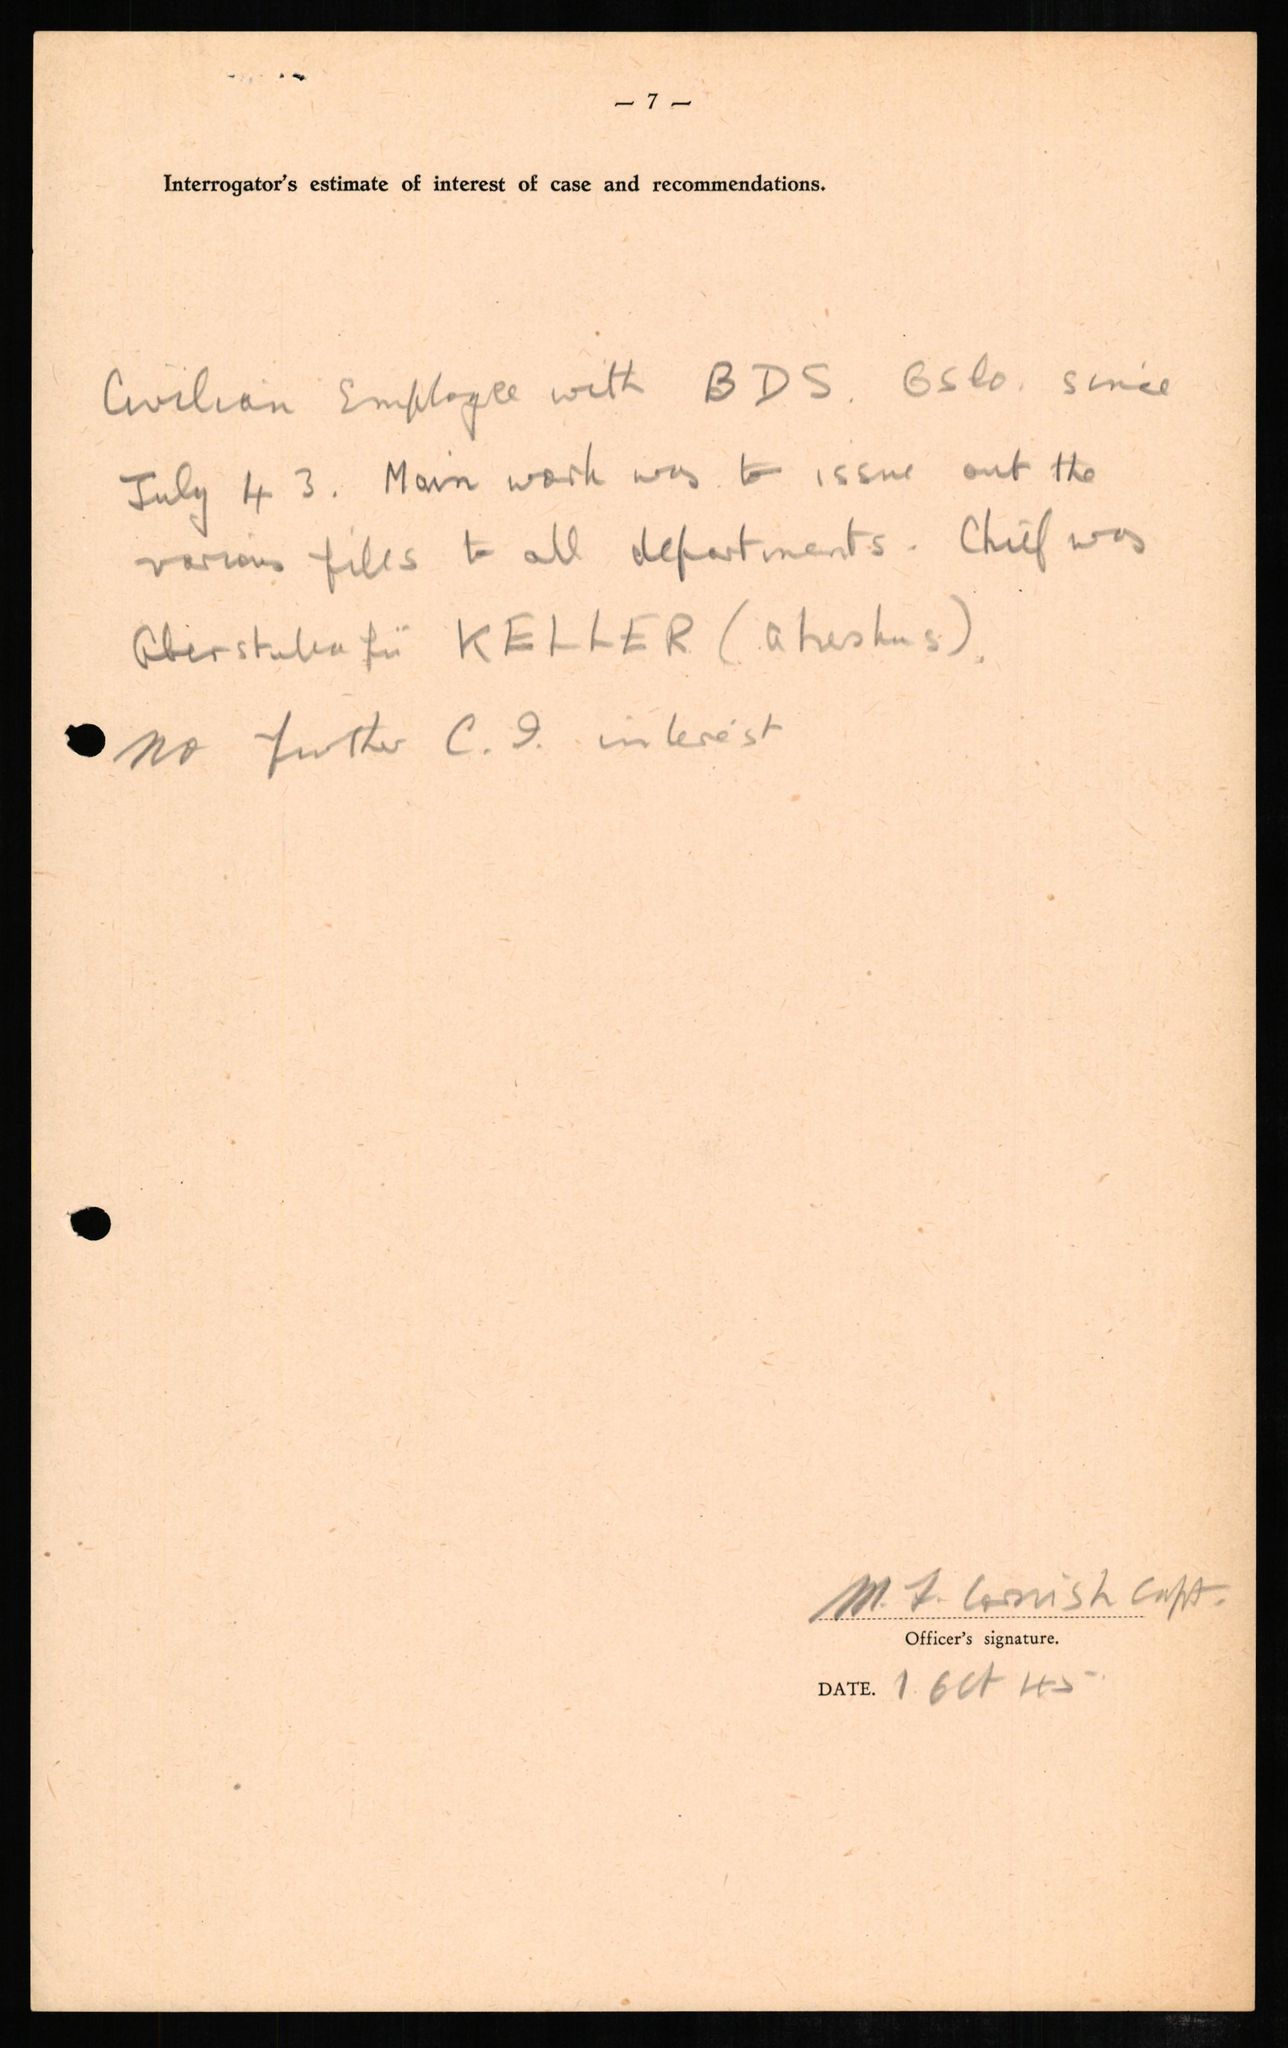 — 7 —
Interrogator's estimate of interest of case and recommendations.
Civilian Employee with BDS. Oslo. since
July 43. Main work was to issue out the
various files to all departments. Chief was
KELLER (Akershus).
No further C.I. interest
M. F. Cornish Capt.
Officer's signature.
DATE. 1 Oct 45